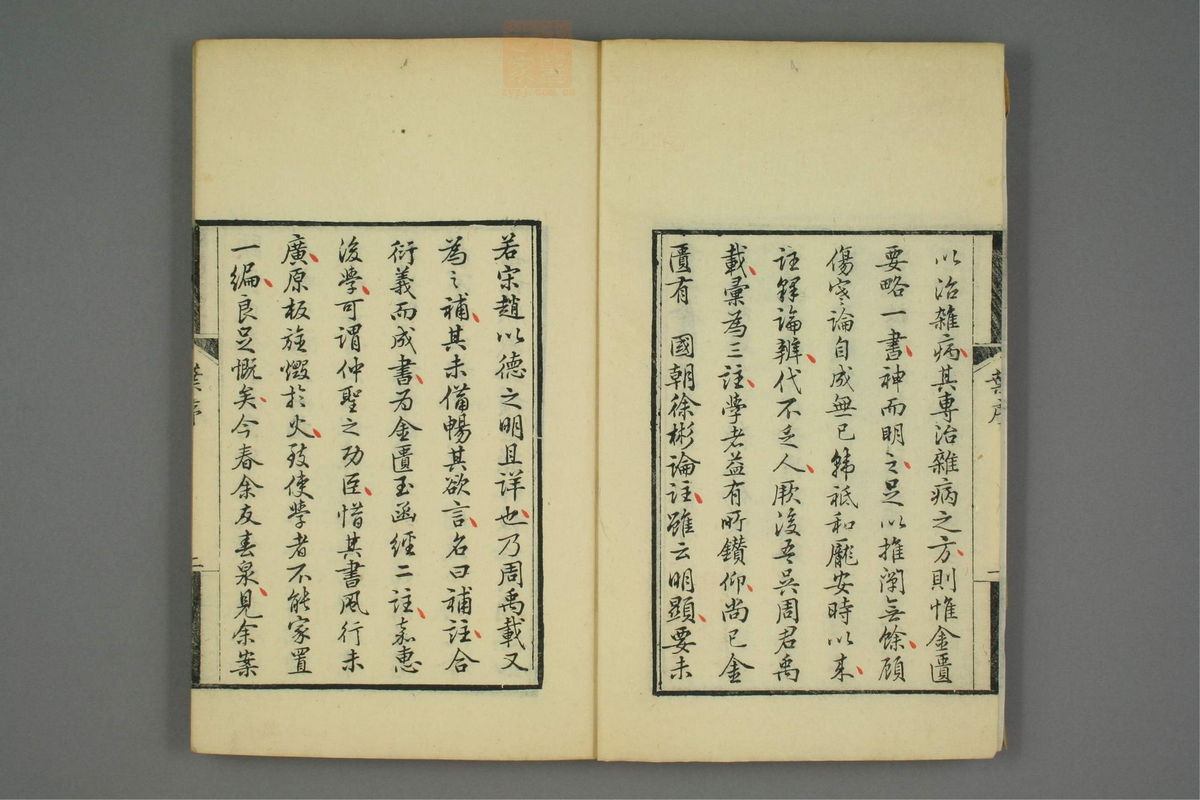 以治雜病其專治雜病之方則惟金匱
要略一書神而明之足以推闡無餘顧
傷寒論自成無已韓祗和龐安時以来
註釋論辨代不乏人厥後吾吳周君禹
載彙為三註學者益有所鑚仰尚已金
匱有 國朝徐彬論註雖云明顯要未
若宋趙以德之明且详也乃周禹載又
為之補其未備暢其欲言名曰補註合
衍義而成書为金匱玉函經二註嘉惠
後學可謂仲聖之功臣惜其書風行未
廣原板旋燬於火致使學者不能家置
一编良足慨矣今春余友春泉見余案
葉序
二